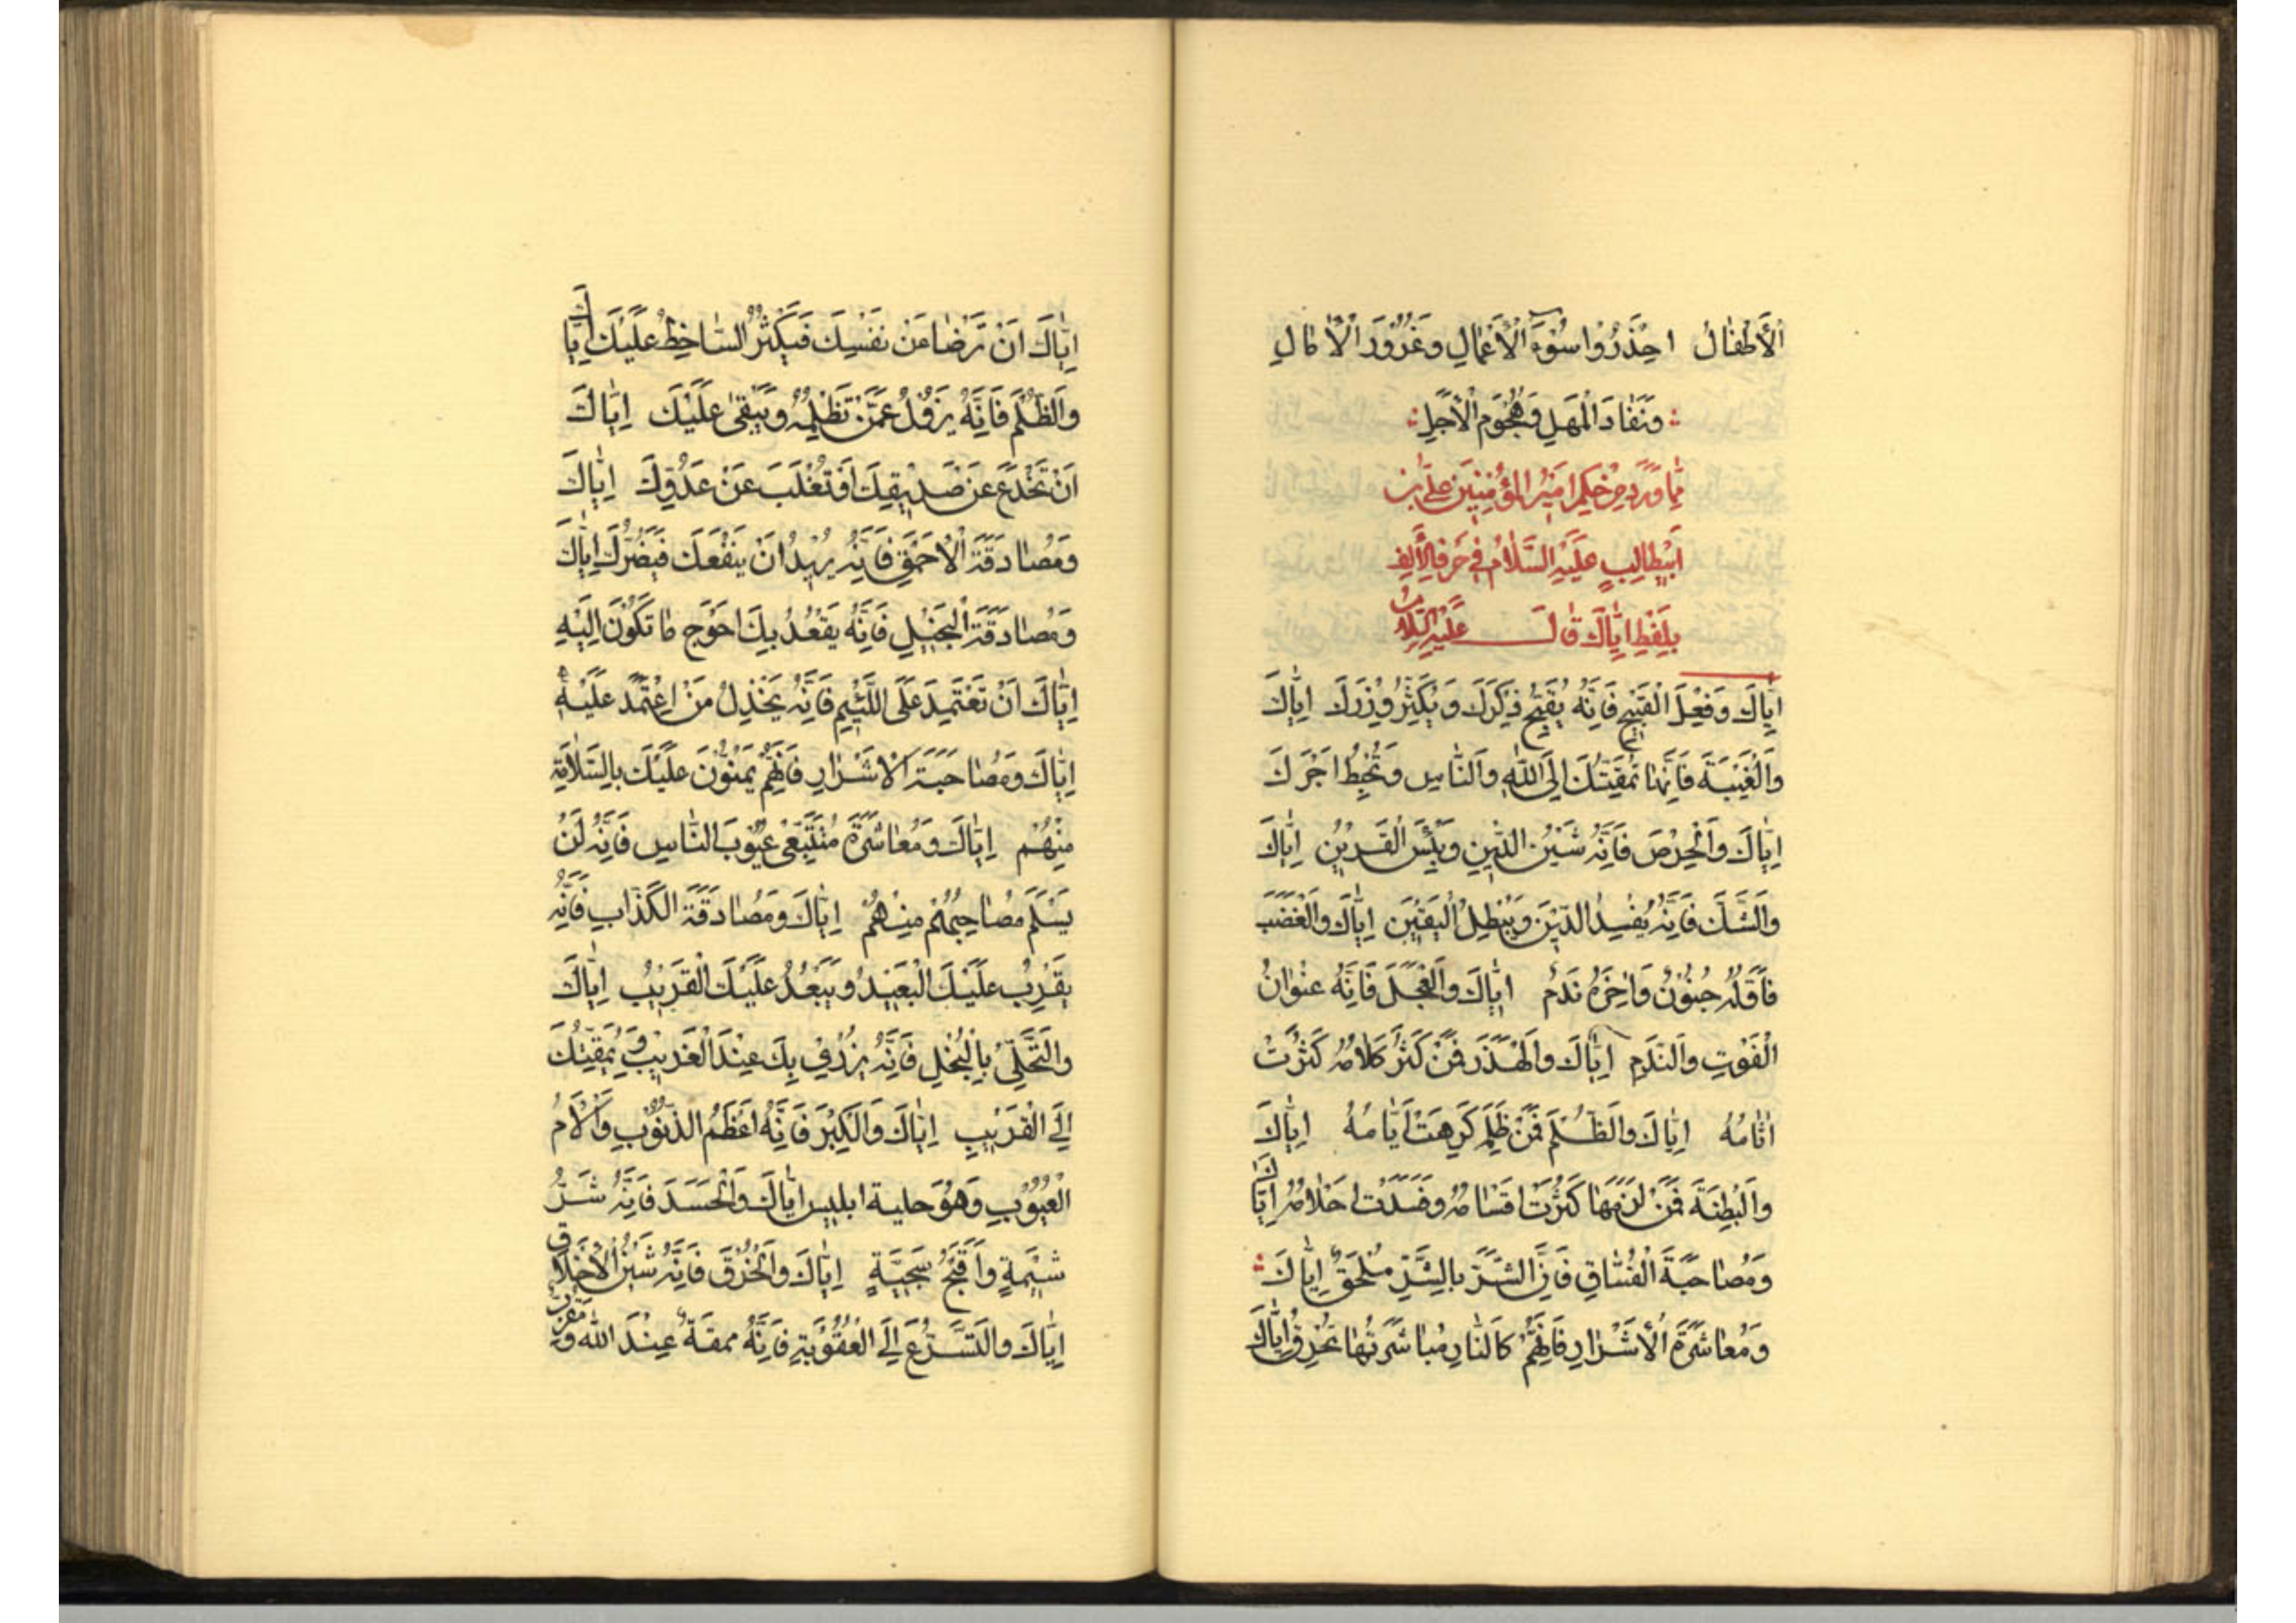 الْأَطْفَالُ احْذَرُوا سُوءَ الْأَعْمَالِ وَغُرُورَ الْآمَالِ
وَنَفَادَ الْمَهَلِ وَهُجُومَ الْأَجَلِ
مِمَّا وَرَدَ مِنْ حِكَمِ أَمِيرِ الْمُؤْمِنِينَ عَلِيِّ بْنِ
أَبِيطَالِبٍ عَلَيْهِ السَّلَامُ فِي حَرْفِ الْأَلِفِ
بِلَفْظِ إِيَّاكَ قَالَ عَلَيْهِ السَّلَامُ
إِيَّاكَ وَفِعْلَ الْقَبِيحِ فَإِنَّهُ يُقَبِّحُ ذِكْرَكَ وَيُكَثِّرُ وِزْرَكَ إِيَّاكَ
وَالْغِيبَةَ فَإِنَّهَا تُمَقِّتُكَ إِلَى اللَّهِ وَالنَّاسِ وَتُحْبِطُ أَجْرَكَ
إِيَّاكَ وَالْحِرْصَ فَإِنَّهُ شَيْنُ الدِّينِ وَبِئْسَ الْقَرِينُ إِيَّاكَ
وَالشَّكَّ فَإِنَّهُ يُفْسِدُ الدِّينَ وَيُبْطِلُ الْيَقِينَ إِيَّاكَ وَالْغَضَبَ
فَأَوَّلُهُ جُنُونٌ وَآخِرُهُ نَدَمٌ إِيَّاكَ وَالْعَجَلَ فَإِنَّهُ عُنْوَانُ
الْفَوْتِ وَالنَّدَمِ إِيَّاكَ وَالْهَذَرَ فَمَنْ كَثُرَ كَلَامُهُ كَثُرَتْ
آثَامُهُ إِيَّاكَ وَالظُّلْمَ فَمَنْ ظَلَمَ كَرِهَتْ أَيَّامُهُ إِيَّاكَ
وَالْبِطْنَةَ فَمَنْ لَزِمَهَا كَثُرَتْ أَسْقَامُهُ وَفَسَدَتْ أَحْلَامُهُ إِيَّاكَ
وَمُصَاحَبَةَ الْفُسَّاقِ فَإِنَّ الشَّرَّ بِالشَّرِّ مُلْحَقٌ إِيَّاكَ
وَمُعَاشَرَةَ الْأَشْرَارِ فَإِنَّهُمْ كَالنَّارِ مُبَاشَرَتُهَا تُحْرِقُ إِيَّاكَ
إِيَّاكَ أَنْ تَرْضَا عَنْ نَفْسِكَ فَيَكْثُرُ السَّاخِطُ عَلَيْكَ إِيَّاكَ
وَالظُّلْمَ فَإِنَّهُ يَزُولُ عَمَّنْ تَظْلِمُهُ وَيَبْقَى عَلَيْكَ إِيَّاكَ
أَنْ تُخْدَعَ عَنْ صَدِيقِكَ أَوْ تُغْلَبَ عَنْ عَدُوِّكَ إِيَّاكَ
وَمُصَادَقَةَ الْأَحْمَقِ فَإِنَّهُ يُرِيدُ أَنْ يَنْفَعَكَ فَيَضُرُّكَ إِيَّاكَ
وَمُصَادَقَةَ الْبَخِيلِ فَإِنَّهُ يَقْعُدُ بِكَ أَحْوَجَ مَا تَكُونُ إِلَيْهِ
إِيَّاكَ أَنْ تَعْتَمِدَ عَلَى اللَّئِيمِ فَإِنَّهُ يَخْذُلُ مَنْ اعْتَمَدَ عَلَيْهِ
إِيَّاكَ وَمُصَاحَبَةَ الْأَشْرَارِ فَإِنَّهُمْ يَمُنُّونَ عَلَيْكَ بِالسَّلَامَةِ
مِنْهُمْ إِيَّاكَ وَمُعَاشَرَةَ مُتَتَبِّعِي عُيُوبِ النَّاسِ فَإِنَّهُ لَنْ
يَسْلَمَ مُصَاحِبُهُمْ مِنْهُمْ إِيَّاكَ وَمُصَادَقَةَ الْكَذَّابِ فَإِنَّهُ
يُقَرِّبُ عَلَيْكَ الْبَعِيدَ وَيُبَعِّدُ عَلَيْكَ الْقَرِيبَ إِيَّاكَ
وَالتَّحَلِّيَ بِالْبُخْلِ فَإِنَّهُ يُزْرِي بِكَ عِنْدَ الْغَرِيبِ وَيُمَقِّتُكَ
إِلَى الْقَرِيبِ إِيَّاكَ وَالْكِبْرَ فَإِنَّهُ أَعْظَمُ الذُّنُوبِ وَأَلْأَمُ
الْعُيُوبِ وَهُوَ حلية ابليس إِيَّاكَ وَالْحَسَدَ فَإِنَّهُ شَرُّ
شِيمَةٍ وَأَقْبَحُ سَجِيَّةٍ إِيَّاكَ وَالْخُرْقَ فَإِنَّهُ شَيْنُ الْأَخْلَاقِ
إِيَّاكَ وَالتَّسَرُّعَ إِلَى الْعُقُوبَةِ فَإِنَّهُ ممقتة عِنْدَ اللَّهِ وَ